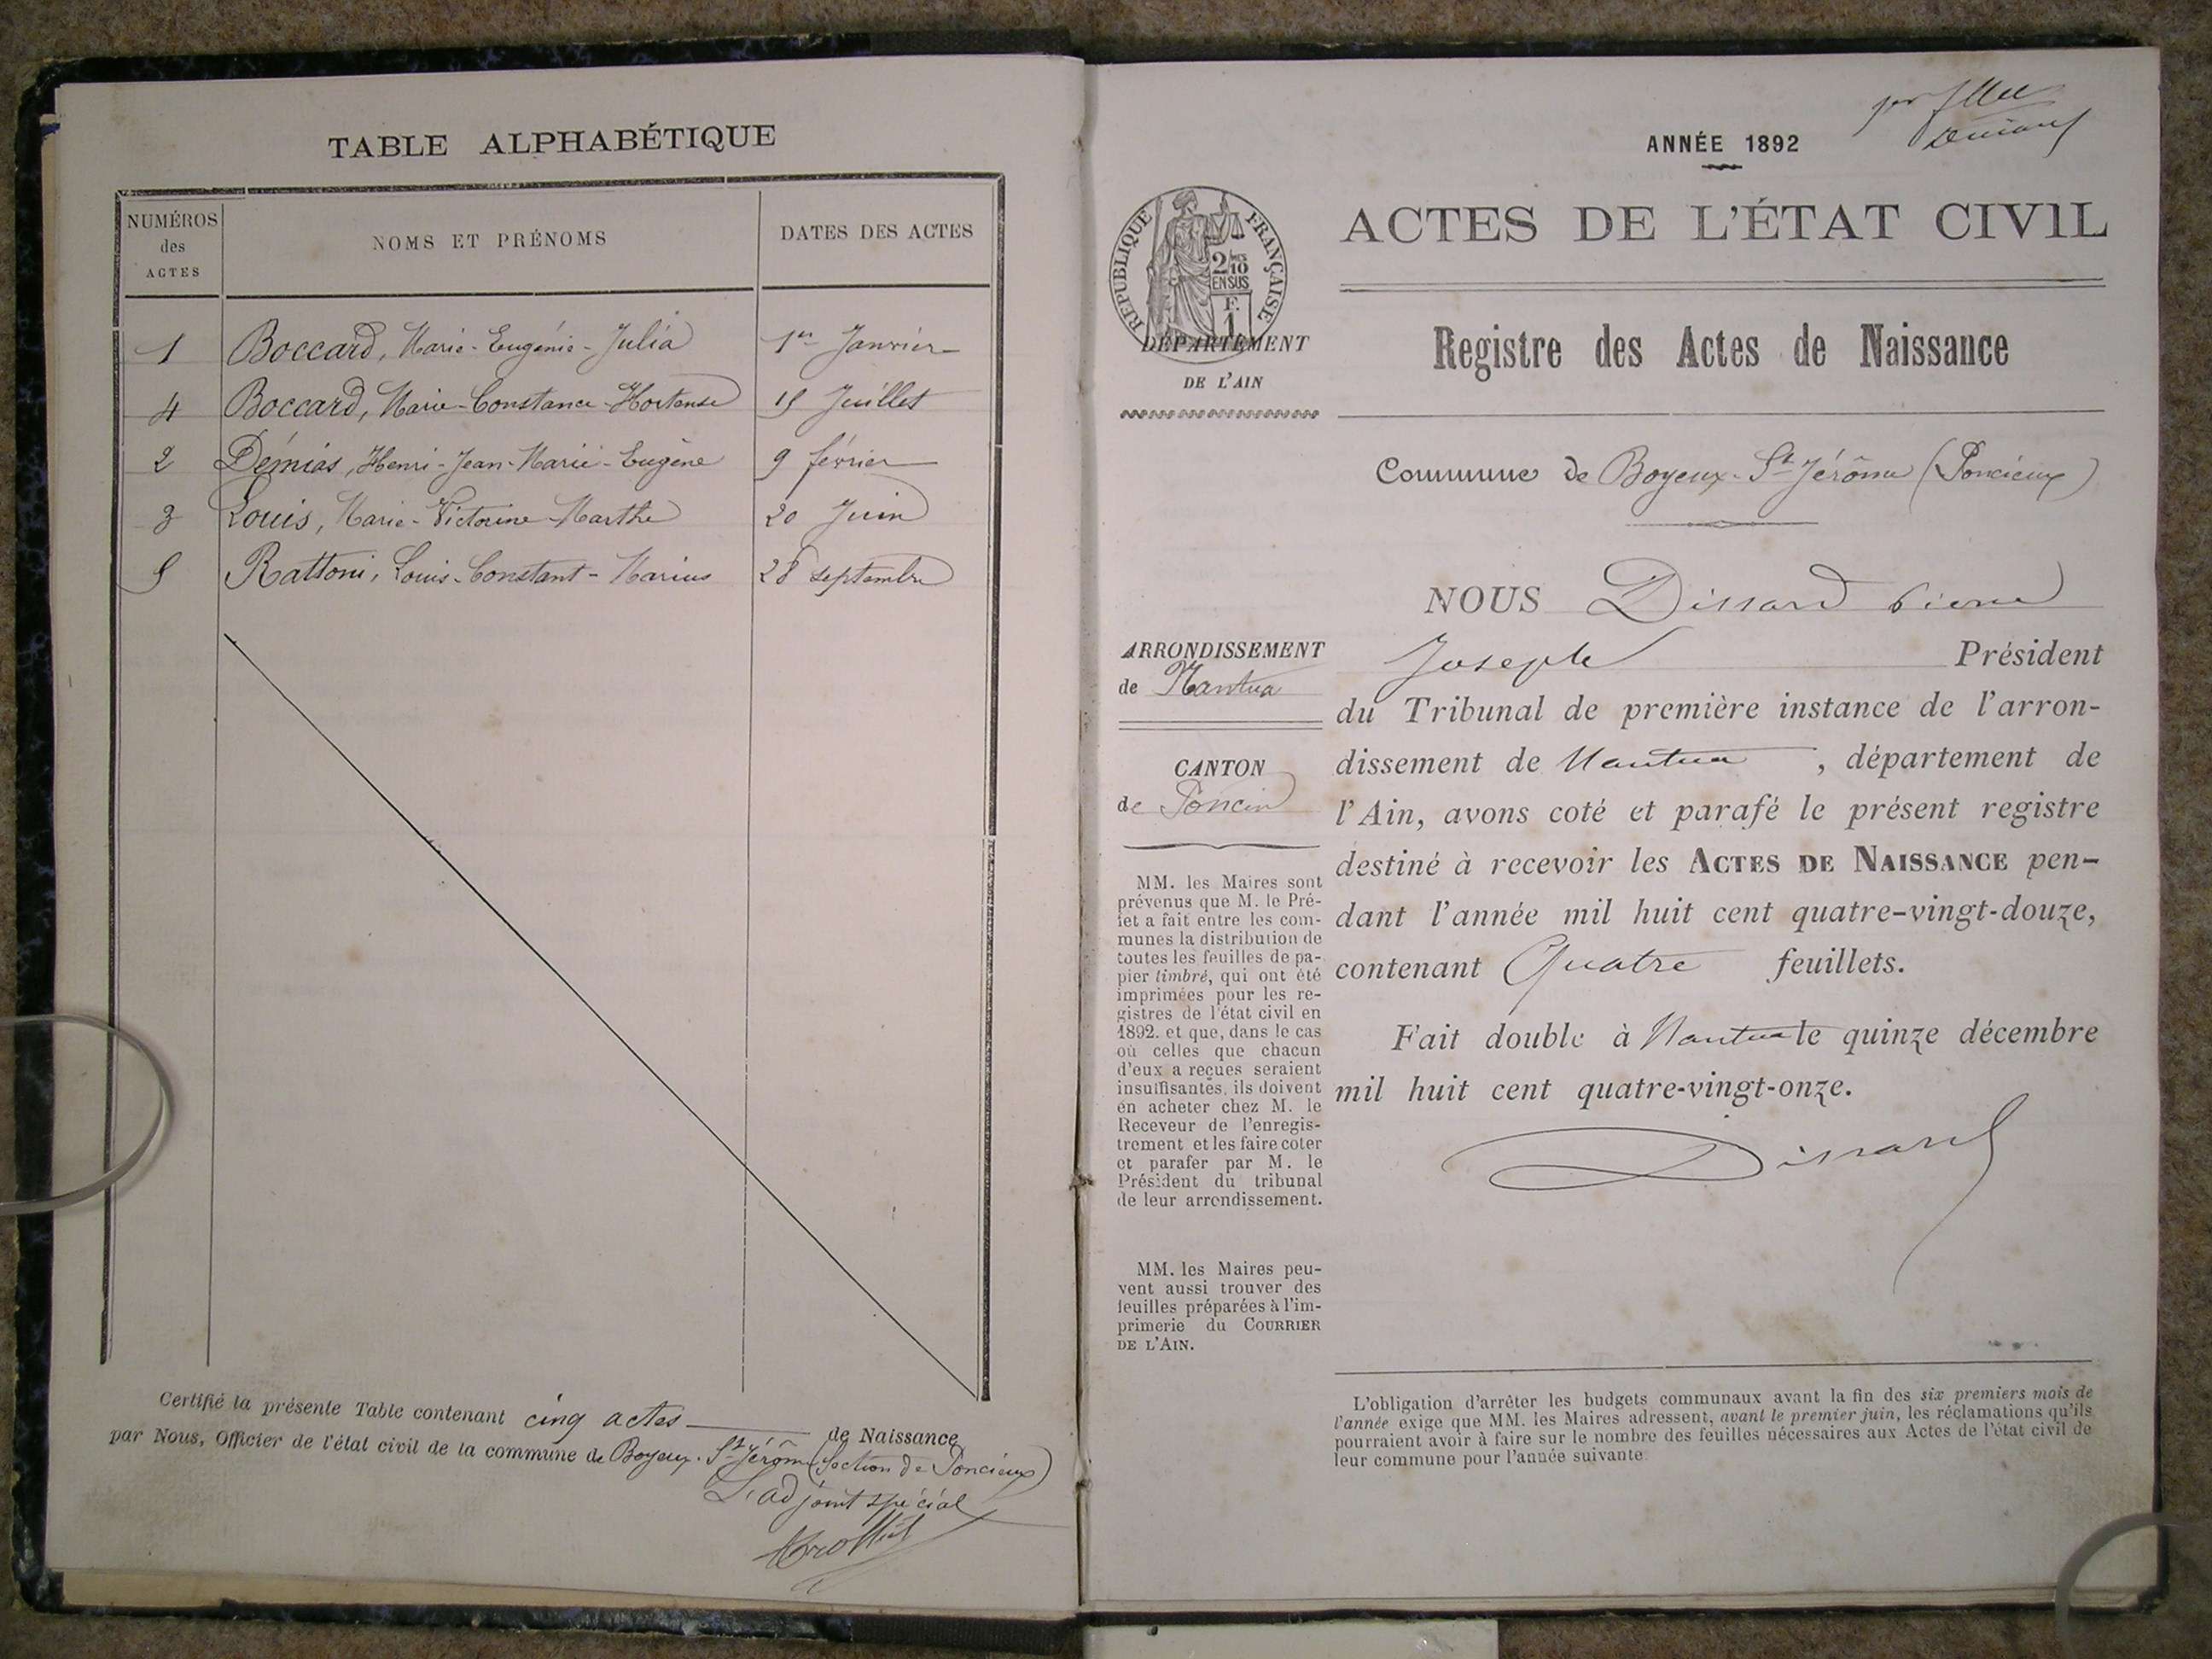 TABLE ALPHABÉTIQUE
NUMÉROS des ACTES
NOMS ET PRÉNOMS
DATES DES ACTES
1 Boccard, Marie-Eugénie-Julia 1er Janvier
4 Boccard, Marie-Constance-Hortense 15 Juillet
2 Démias, Henri-Jean-Marie-Eugène 9 février
3 Louis, Marie-Victorine-Marthe 20 Juin
5 Rattoni, Louis-Constant-Marius 28 septembre
Certifié la présente Table contenant cinq actes de Naissance
par Nous, Officier de l'état civil de la commune de Boyeux-St-Jérôme (Section de Poncieux)
L'adjoint spécial
ANNÉE 1892
ACTES DE L'ÉTAT CIVIL
RÉPUBLIQUE FRANÇAISE
2/10 EN SUS
F. 1
DÉPARTEMENT
DE L'AIN
Registre des Actes de Naissance
Commune de Boyeux-St-Jérôme (Poncieux)
NOUS Dissard Pierre
Joseph Président
du Tribunal de première instance de l'arron-
dissement de Nantua, département de
l'Ain, avons coté et parafé le présent registre
destiné à recevoir les ACTES DE NAISSANCE pen-
dant l'année mil huit cent quatre-vingt-douze,
contenant Quatre feuillets.
Fait double à Nantua le quinze décembre
mil huit cent quatre-vingt-onze.
Dissard
ARRONDISSEMENT
de Nantua
CANTON
de Poncin
MM. les Maires sont
prévenus que M. le Pré-
fet a fait entre les com-
munes la distribution de
toutes les feuilles de pa-
pier timbré, qui ont été
imprimées pour les re-
gistres de l'état civil en
1892. et que, dans le cas
où celles que chacun
d'eux a reçues seraient
insuffisantes, ils doivent
en acheter chez M. le
Receveur de l'enregis-
trement et les faire coter
et parafer par M. le
Président du tribunal
de leur arrondissement.
MM. les Maires peu-
vent aussi trouver des
feuilles préparées à l'im-
primerie du COURRIER
DE L'AIN.
L'obligation d'arrêter les budgets communaux avant la fin des six premiers mois de
l'année exige que MM. les Maires adressent, avant le premier juin, les réclamations qu'ils
pourraient avoir à faire sur le nombre des feuilles nécessaires aux Actes de l'état civil de
leur commune pour l'année suivante.